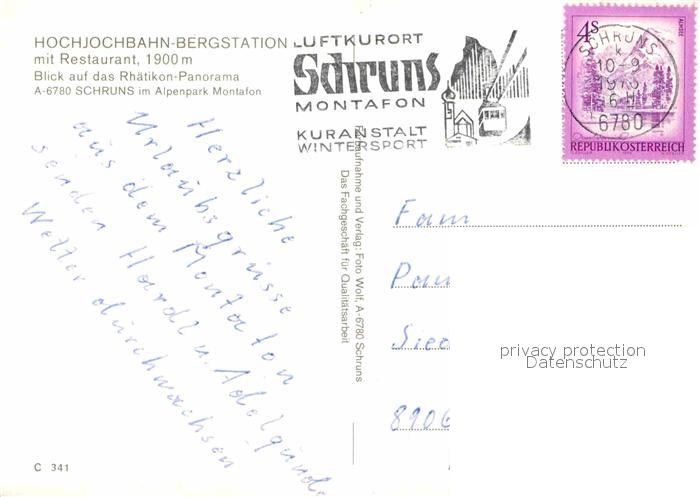 HOCHJOCHBAHN-BERGSTATION
mit Restaurant, 1900 m
Blick auf das Rhätikon-Panorama
A-6780 SCHRUNS im Alpenpark Montafon
LUFTKURORT
Schruns
MONTAFON
KURANSTALT
WINTERSPORT
4S
ALMSEE
REPUBLIK ÖSTERREICH
SCHRUNS
k
10-9
6780
Herzliche
Urlaubsgrüsse
aus dem Montafon
senden Hardl u. Adelgunde
Wetter durchwachsen
Farbaufnahme und Verlag: Foto Wolf, A-6780 Schruns
Das Fachgeschäft für Qualitätsarbeit
Fam
Pau
8906
privacy protection
Datenschutz
C 341